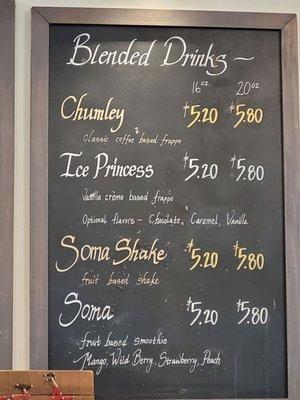 Blended Drinks ~
16 oz. 20 oz.
Chumley $5.20 $5.80
Classic coffee based frappe
Ice Princess $5.20 $5.80
Vanilla crème based frappe
Optional flavors - Chocolate, Caramel, Vanilla
Soma Shake $5.20 $5.80
fruit based shake
Soma $5.20 $5.80
fruit based smoothie
Mango, Wild Berry, Strawberry, Peach